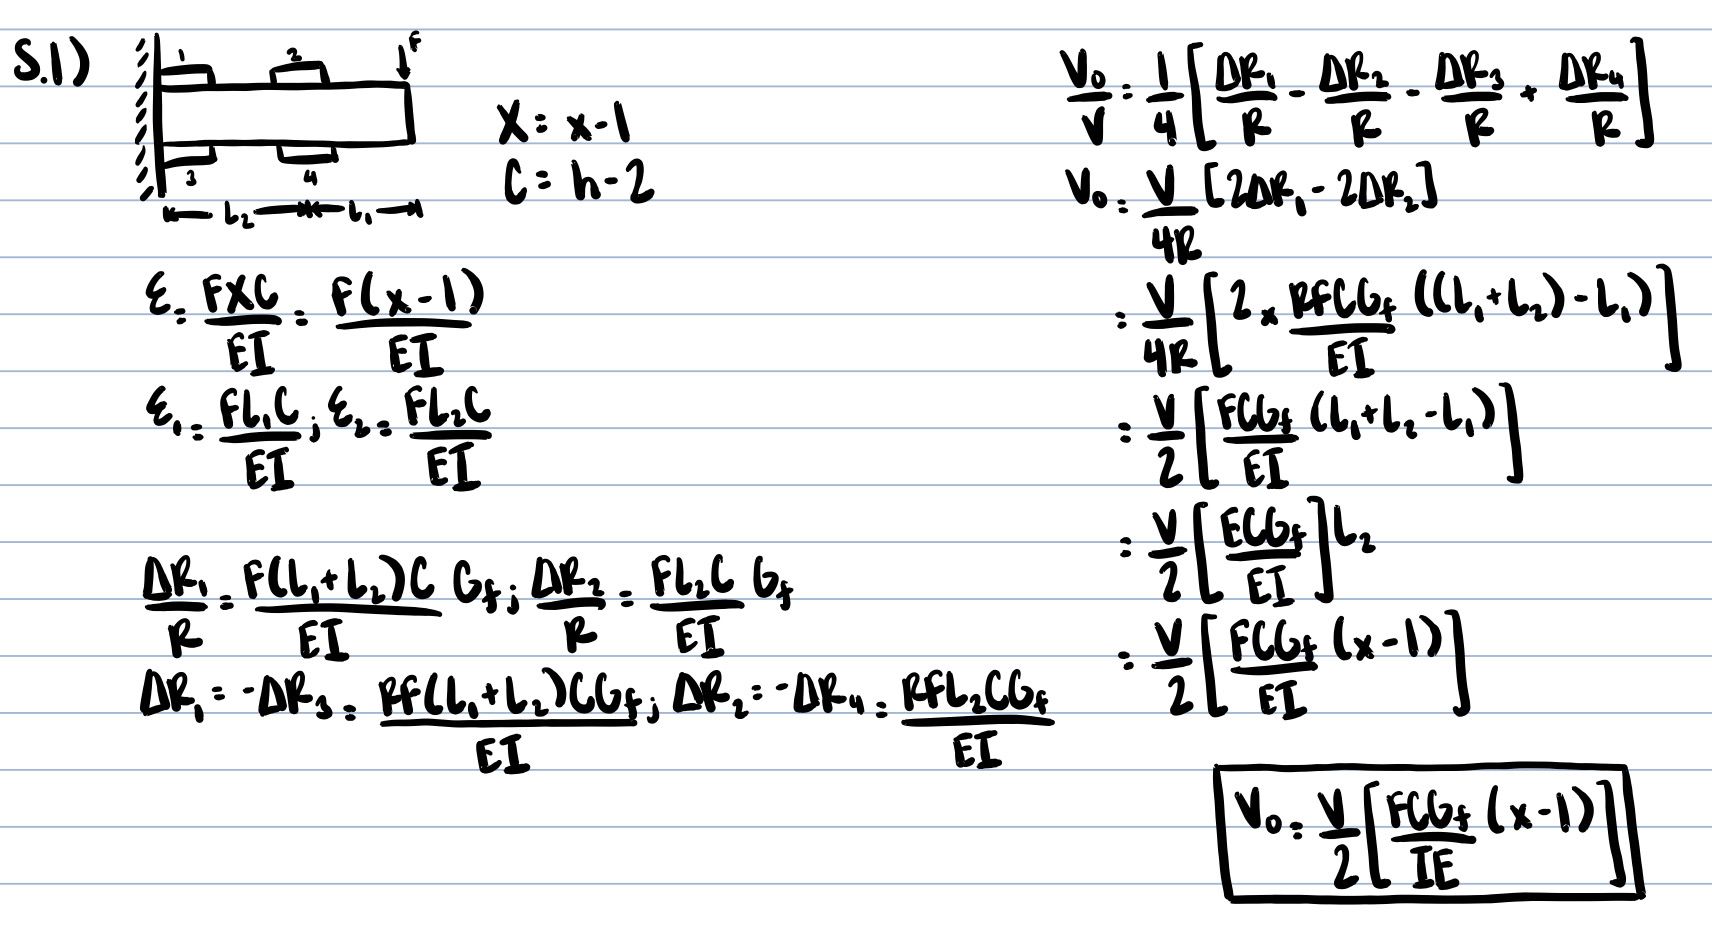 S.1)
1 2 F
3 4
L₂ L₁
X = x-1
C = h-2
ε = FXC/EI = F(x-1)/EI
ε₁ = FL₁C/EI ; ε₂ = FL₂C/EI
ΔR₁/R = F(L₁+L₂)C/EI G_f ; ΔR₂/R = FL₂C/EI G_f
ΔR₁ = -ΔR₃ = RF(L₁+L₂)CG_f/EI ; ΔR₂ = -ΔR₄ = RFL₂CG_f/EI
V₀/V = 1/4 [ΔR₁/R - ΔR₂/R - ΔR₃/R + ΔR₄/R]
V₀ = V/4R [2ΔR₁ - 2ΔR₂]
= V/4R [2 x RFCG_f/EI ((L₁+L₂)-L₁)]
= V/2 [FCG_f/EI (L₁+L₂-L₁)]
= V/2 [ECG_f/EI] L₂
= V/2 [FCG_f/EI (x-1)]
V₀ = V/2 [FCG_f/IE (x-1)]